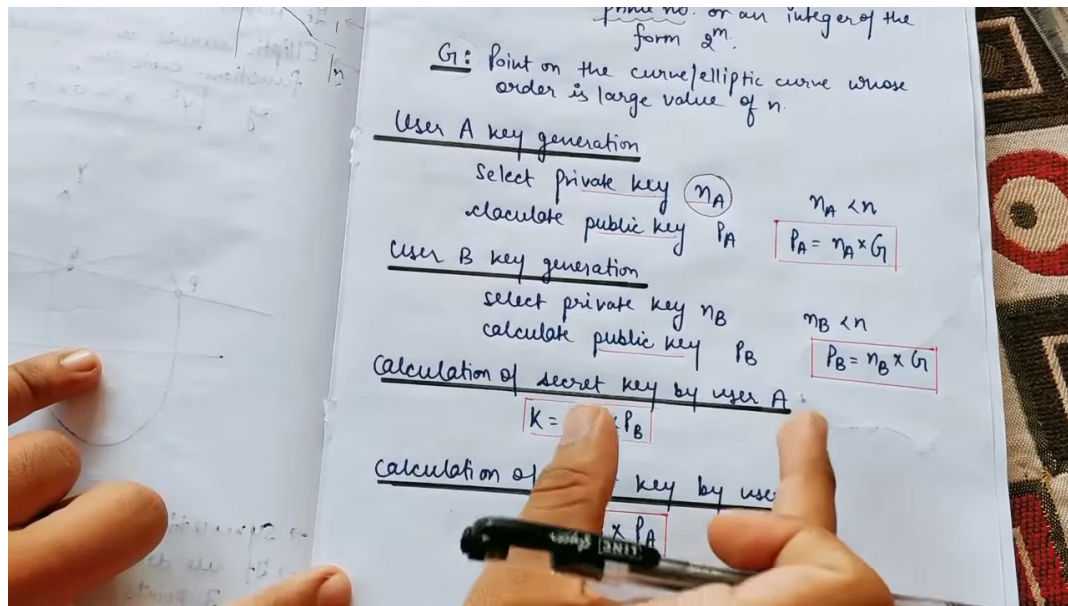 prime no. or an integer of the
form 2^m.
G: Point on the curve/elliptic curve whose
order is large value of n.
User A key generation
Select private key n_A n_A < n
claculate public key P_A P_A = n_A × G
User B key generation
select private key n_B n_B < n
calculate public key P_B P_B = n_B × G
Calculation of secret key by user A
K = × P_B
Calculation of key by use
× P_A